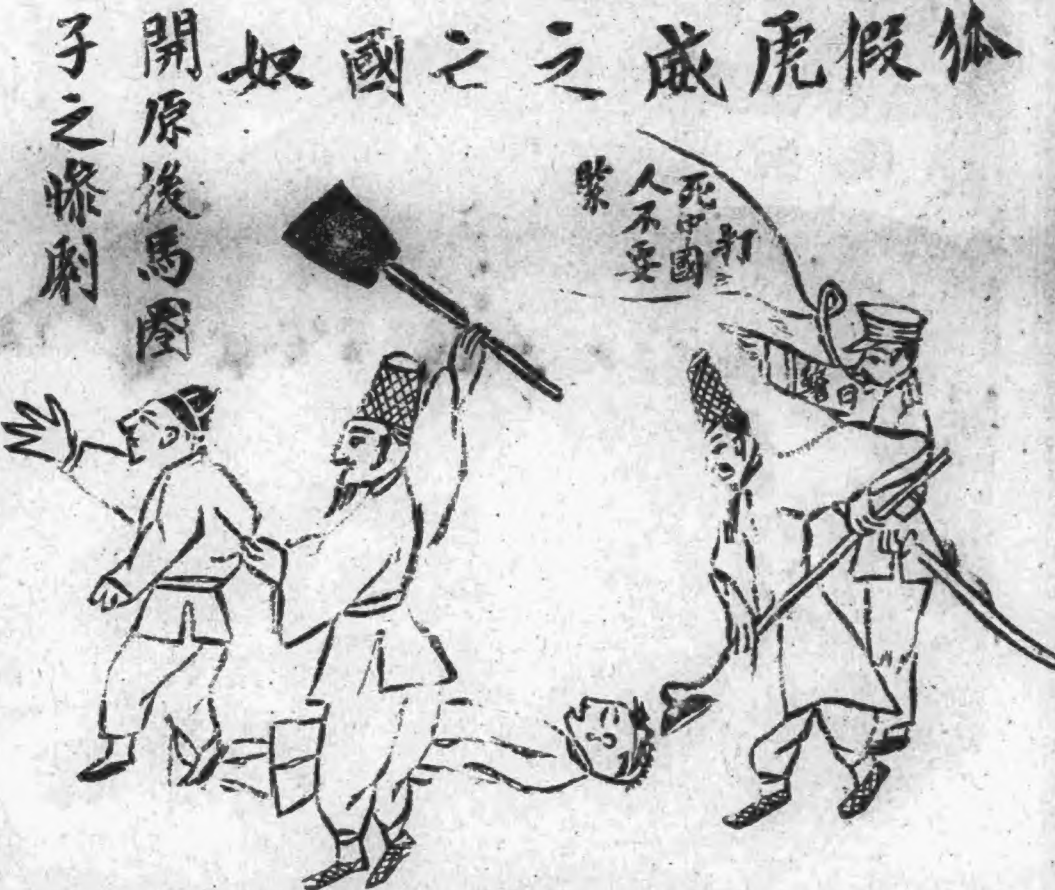 狐假虎威之亡國奴
開原後馬圈
子之慘劇
打
死中國
人不要
緊
日